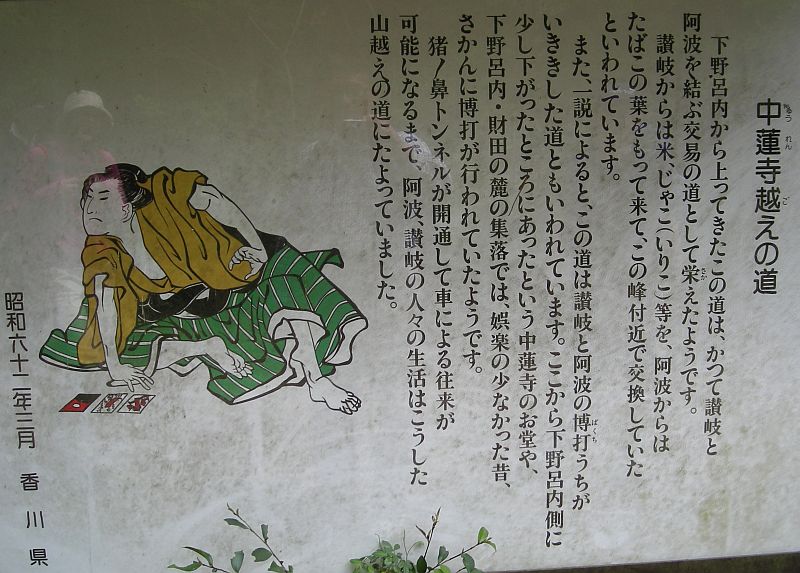 中蓮寺越えの道
ちゅう れん ご
下野呂内から上ってきたこの道は、かつて讃岐と
阿波を結ぶ交易の道として栄えたようです。
さか
讃岐からは米、じゃこ(いりこ)等を、阿波からは
たばこの葉をもって来て、この峰付近で交換していた
といわれています。
また、一説によると、この道は讃岐と阿波の博打うちが
ばくち
いききした道ともいわれています。ここから下野呂内側に
少し下がったところにあったという中蓮寺のお堂や、
下野呂内・財田の麓の集落では、娯楽の少なかった昔、
さかんに博打が行われていたようです。
猪ノ鼻トンネルが開通して車による往来が
可能になるまで、阿波、讃岐の人々の生活はこうした
山越えの道にたよっていました。
昭和六十二年三月 香川県